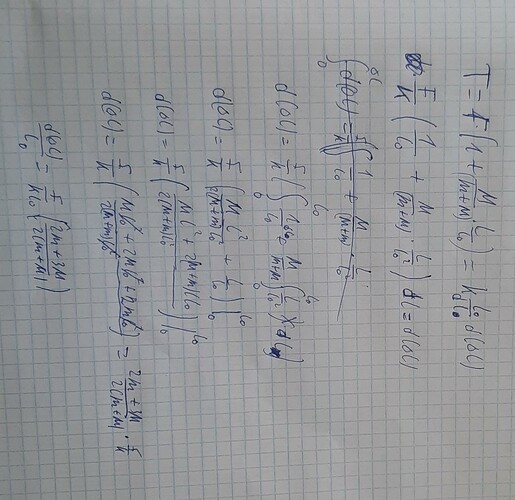 T = F · (1 + M/(m+M) · L/L₀) = k L₀/dL d(ΔL)
F/k (1/L₀ + M/(m+M) · L/L₀²) dL = d(ΔL)
∫₀^ΔL d(ΔL) = F/k ∫₀^L₀ (1/L₀ + M/(m+M) · L/L₀²
d(ΔL) = F/k (∫₀^L₀ 1/L₀ + M/(m+M) ∫₀^L₀ (L/L₀²) × dL)
d(ΔL) = F/k (M L²/2(M+m)L₀² + L/L₀)|₀^L₀
d(ΔL) = F/k (M L² + 2(M+m)L L₀/2(M+m)L₀²)|₀^L₀
d(ΔL) = F/k (ML₀² + 2ML₀² + 2mL₀²/2(M+m)L₀²) = 2m + 3M/2(m+M) · F/k
d(ΔL)/L₀ = F/kL₀ (2m + 3M/2(m+M))